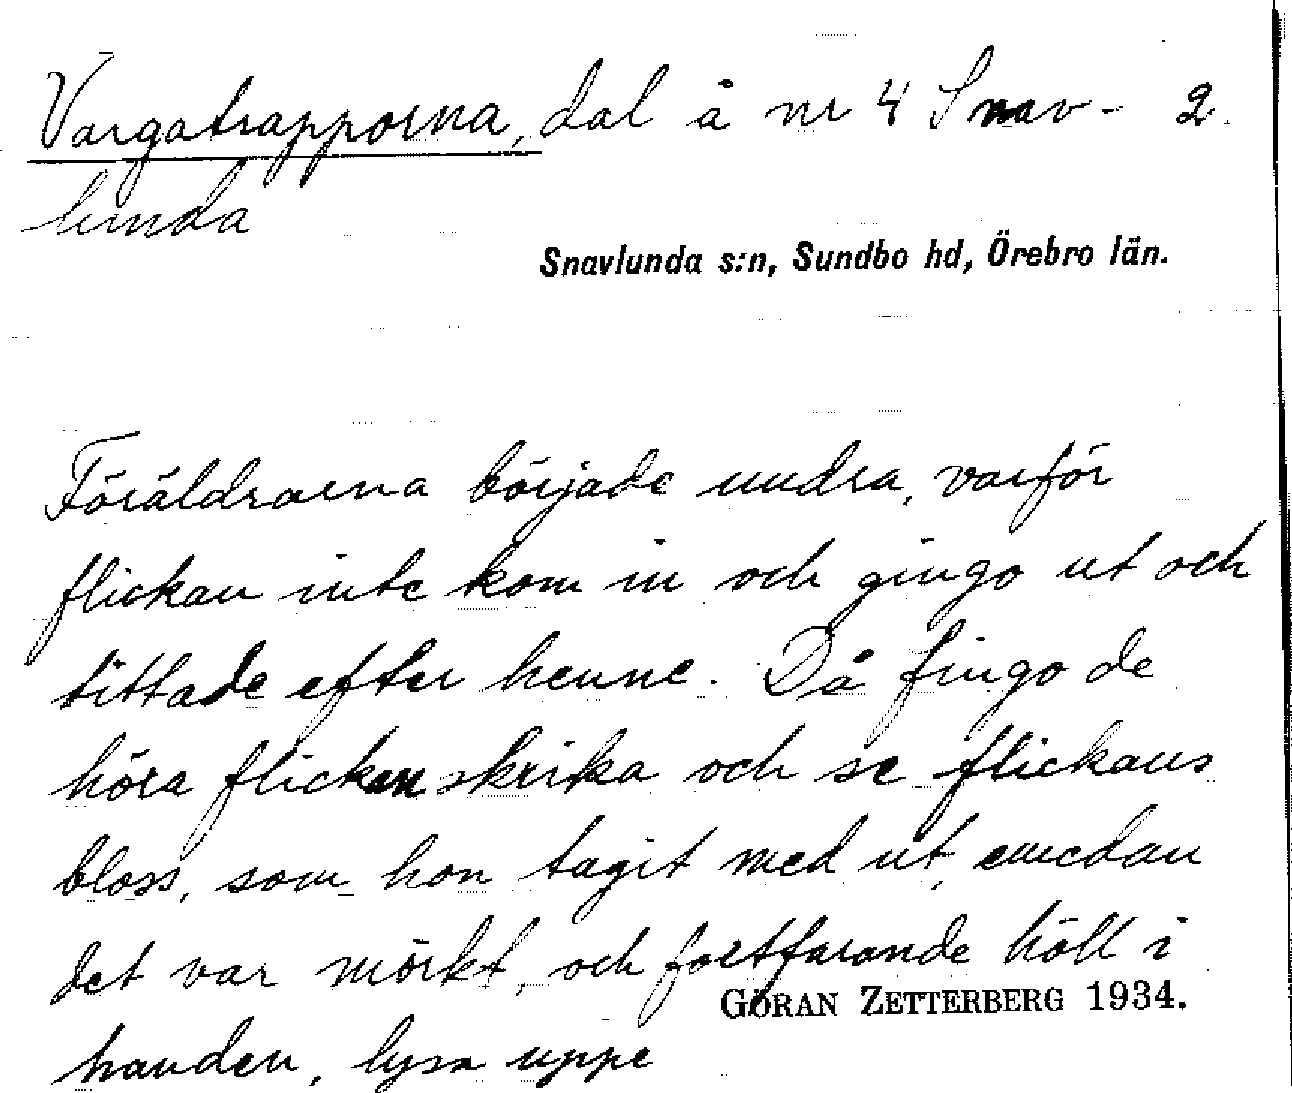 Vargatrapporna, dal å nr 4 Snav- 2
lunda
Snavlunda s:n, Sundbo hd, Örebro län.
Föräldrarna började undra, varför
flickan inte kom in och gingo ut och
tittade efter henne. Då fingo de
höra flickan skrika och se flickans
bloss, som hon tagit med ut, emedan
det var mörkt, och fortfarande höll i
GÖRAN ZETTERBERG 1934.
handen, lysa uppe